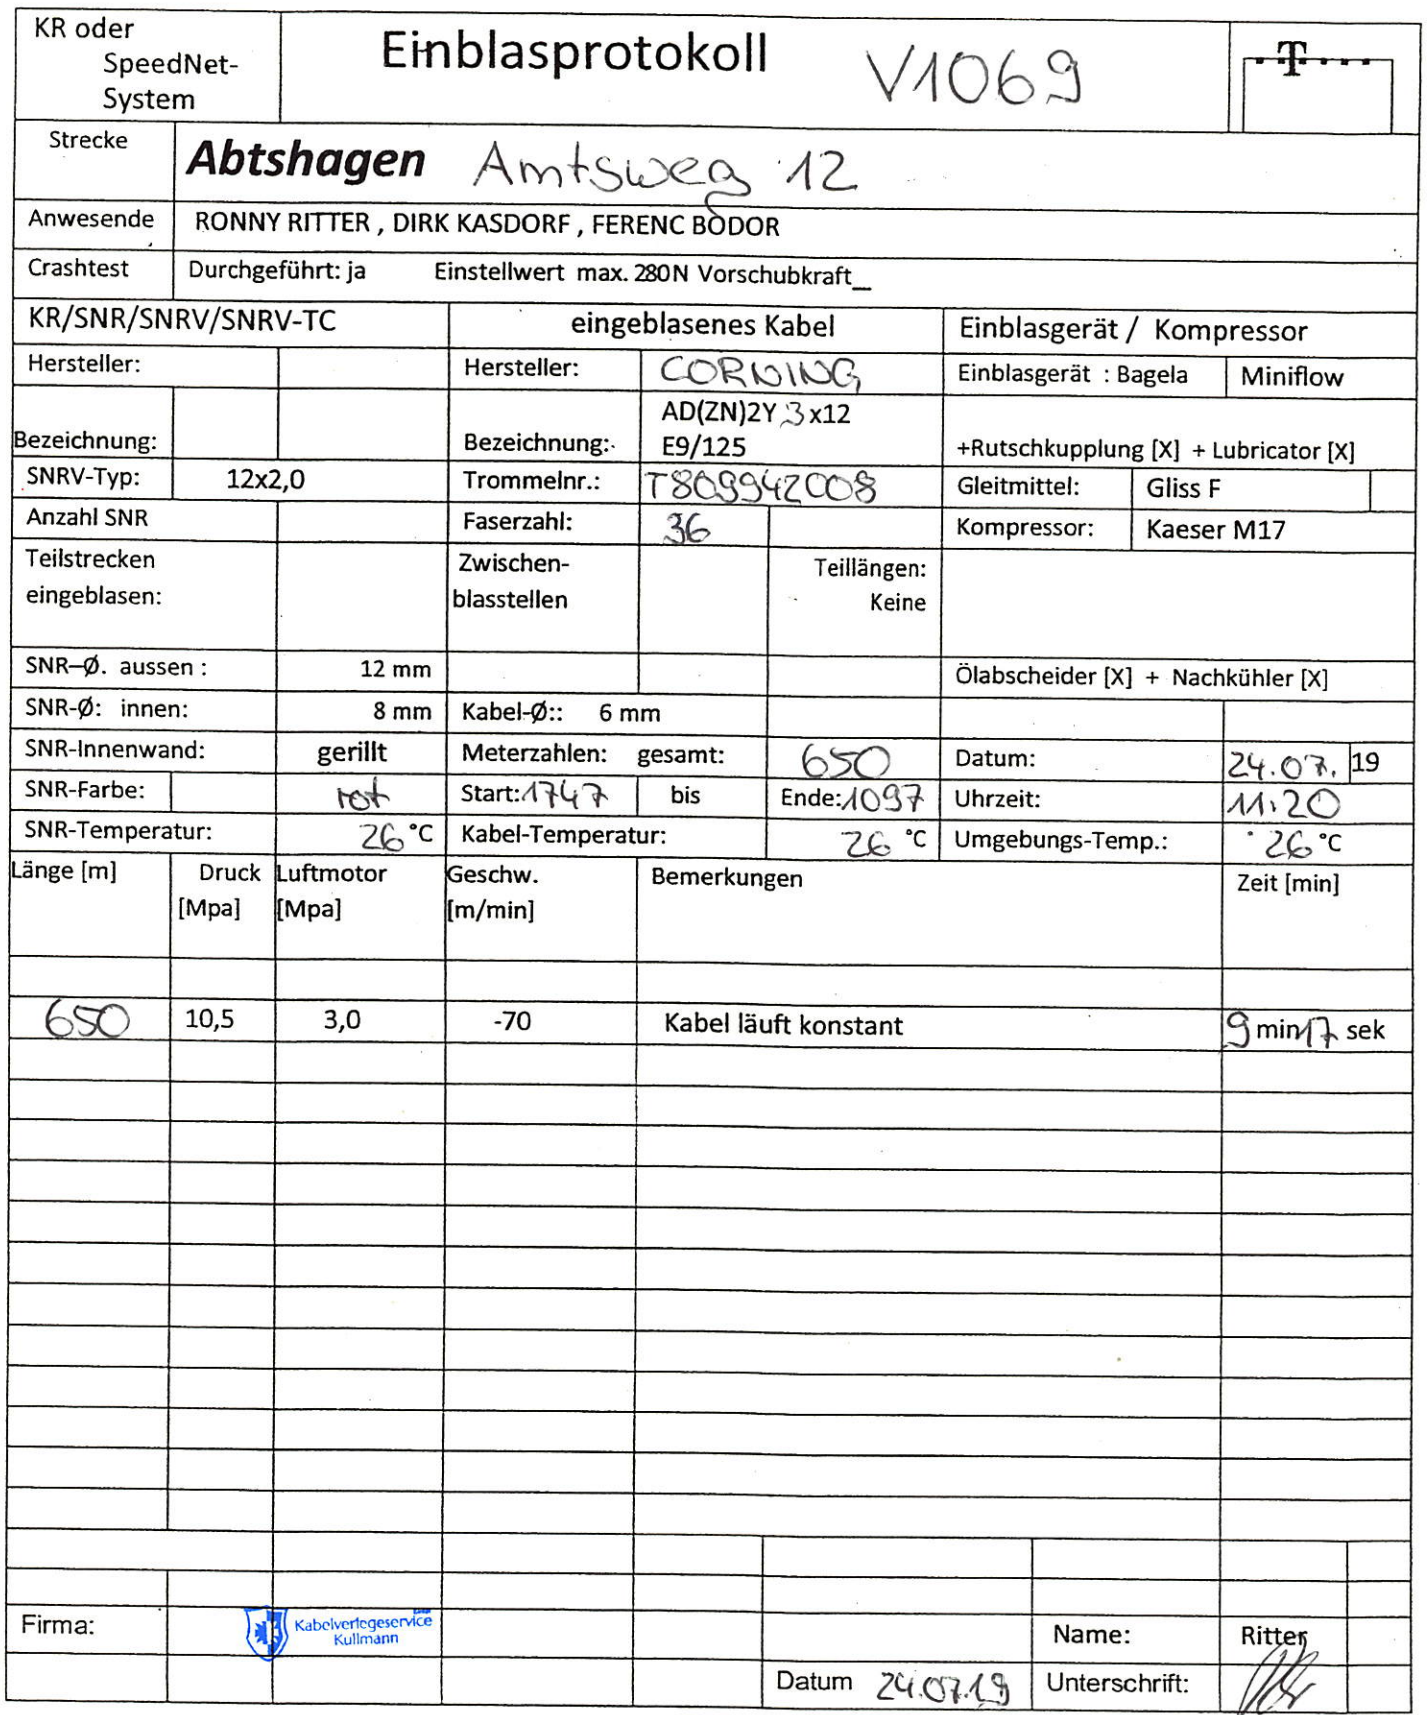 KR oder
SpeedNet-
System
Einblasprotokoll V1069
T
Strecke Abtshagen Amtsweg 12
Anwesende RONNY RITTER , DIRK KASDORF , FERENC BODOR
Crashtest Durchgeführt: ja Einstellwert max. 280N Vorschubkraft_
KR/SNR/SNRV/SNRV-TC eingeblasenes Kabel Einblasgerät / Kompressor
Hersteller: Hersteller: CORNING Einblasgerät : Bagela Miniflow
AD(ZN)2Y 3x12
Bezeichnung: Bezeichnung: E9/125 +Rutschkupplung [X] + Lubricator [X]
SNRV-Typ: 12x2,0 Trommelnr.: T809942008 Gleitmittel: Gliss F
Anzahl SNR Faserzahl: 36 Kompressor: Kaeser M17
Teilstrecken Zwischen- Teillängen:
eingeblasen: blasstellen Keine
SNR-Ø. aussen : 12 mm Ölabscheider [X] + Nachkühler [X]
SNR-Ø: innen: 8 mm Kabel-Ø:: 6 mm
SNR-Innenwand: gerillt Meterzahlen: gesamt: 650 Datum: 24.07. 19
SNR-Farbe: rot Start: 1747 bis Ende: 1097 Uhrzeit: 11:20
SNR-Temperatur: 26 °C Kabel-Temperatur: 26 °C Umgebungs-Temp.: 26 °C
Länge [m] Druck Luftmotor Geschw. Bemerkungen Zeit [min]
[Mpa] [Mpa] [m/min]
650 10,5 3,0 -70 Kabel läuft konstant 9 min 17 sek
Firma: Kabelverlegeservice
Kullmann
Name: Ritter
Datum 24.07.19 Unterschrift: